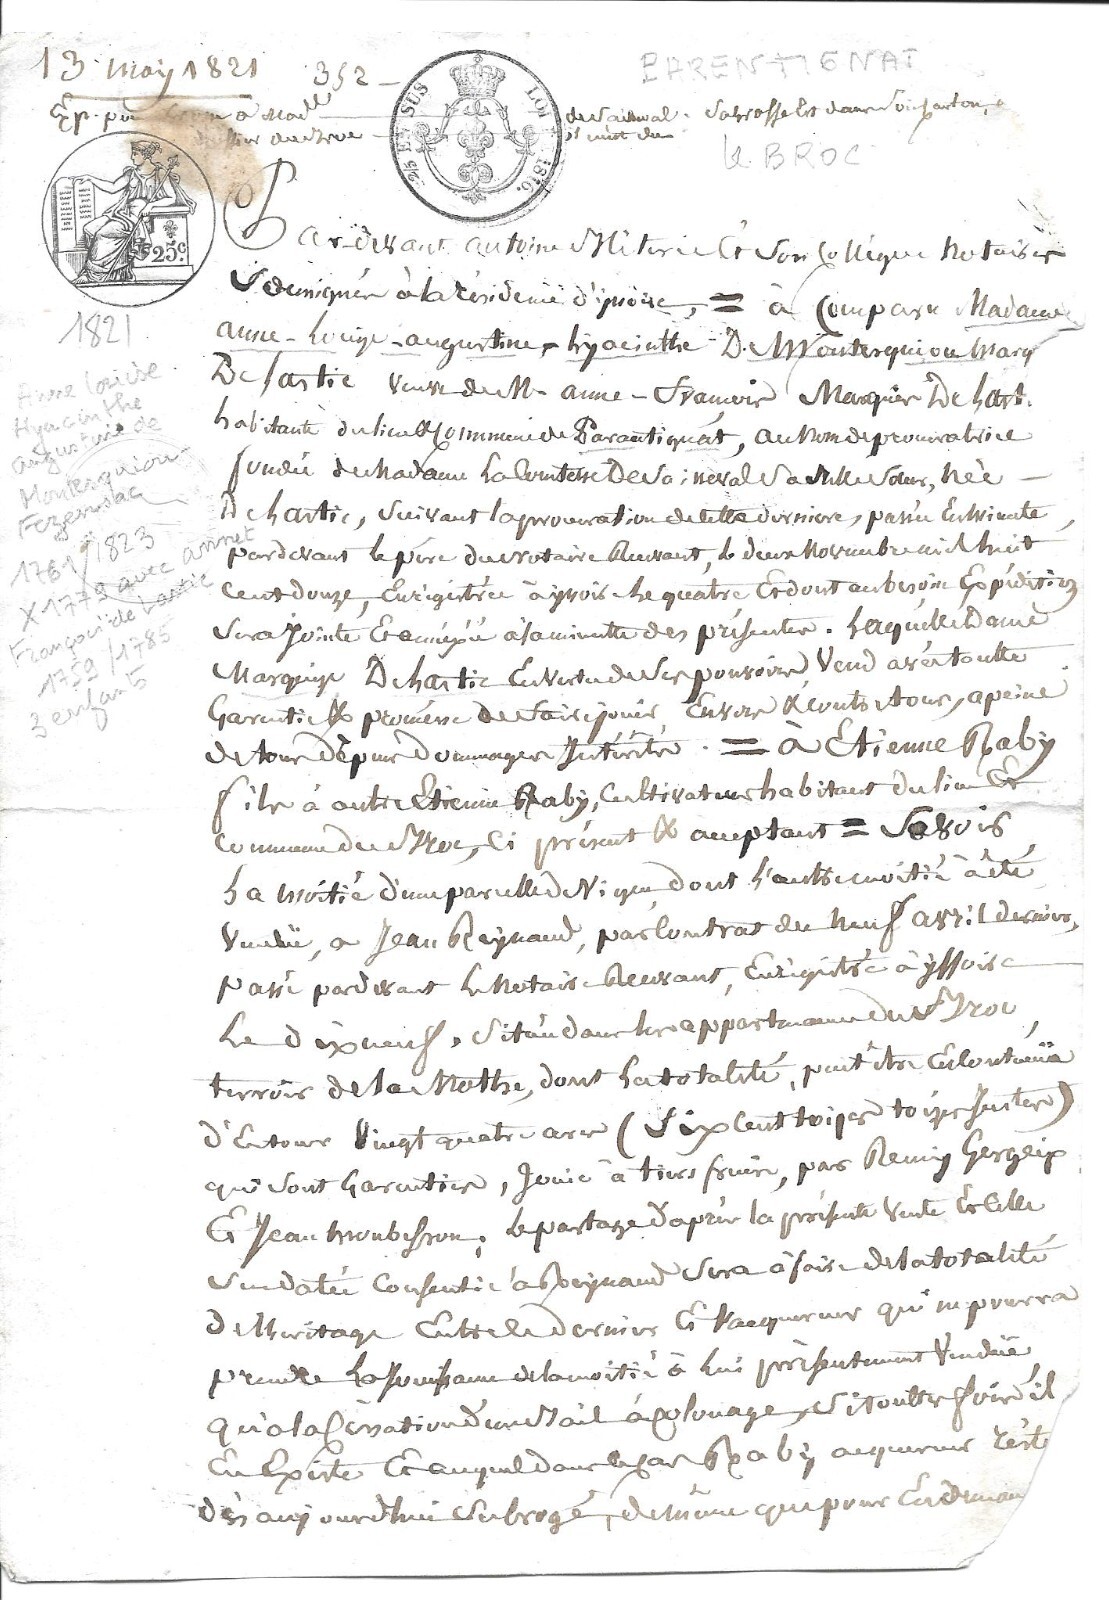 13 may 1821
352
PARENTIGNAT
2/5 EN SUS
LOI 1816.
Exp. pour à Mad
le BROC
25c.
Par-devant antoine et Son Collègue Notaires
Soussignés à la résidence d'yssoire, = à Comparu Madame
anne-Louise-augustine-hyacinthe De Montesquiou Marq
De Lastic veuve de Mr anne-francois Marquis De Last.
habitante du lieu & Commune de Parantignat, au Nom de procuratrice
fondée de Madame La Comtesse De Saineval Sa belle Sœur, Née
De Lastic, Suivant la procuration de cette dernière, passée En Minute
pardevant le père du Notaire Recevant, le deux Novembre mil huit
cent douze, Enrégistrée à yssoire le quatre Et dont au besoin Expédition
Sera Jointe Et annéxée à la minutte des présentes. Laquelle Dame
Marquise De Lastic En vertu de Ses pouvoirs, Vend avec toutte
Garantie & promesse de faire jouir Envers & contre tous, a peine
de tous dépens Dommages Intérêts. = à Etienne Raby
fils à autre Etienne Raby, Cultivateur habitant du lieu Et
Commune du Broc, Ci présent & acceptant = Savoir
La moitié d'une parcelle De Vigne, dont L'autre moitié à été
Vendüe, a Jean Reynaud, par Contrat du neuf avril dernier,
passé pardevant Le Notaire Recevant, Enrégistré à yssoire
Le dixneuf, Située dans les appartenances du Broc,
terroir de la Mothe, dont la totalité, peut être En contenüe
d'Entour Vingt quatre ares (Six Cent toises toises Justes)
qui Sont Garanties, Jouie à tiers fruits, par Remy Gergeix
Et Jean Monbesson; le partage d'après la présente Vente Et Celle
Susdatée Consentie à Reynaud Sera à faire de la totalité
De l'héritage Entre le dernier Et l'acquereur qui ne pourra
prendre La Jouissance de la moitié à lui présentement Vendüe
qu'à la Cessation d'un Bail à Colonage, Si toutte fois il
En Existe Et auquel dans le Cas Raby acquereur reste
dès aujourdhui Subrogé, de même que pour En deman
1821
Anne Louise
Hyacinthe
augustine de
Montesquiou
Fezensac
1761/1823
X 1779 avec anne
François de Lastic
1759/1785
3 enfants